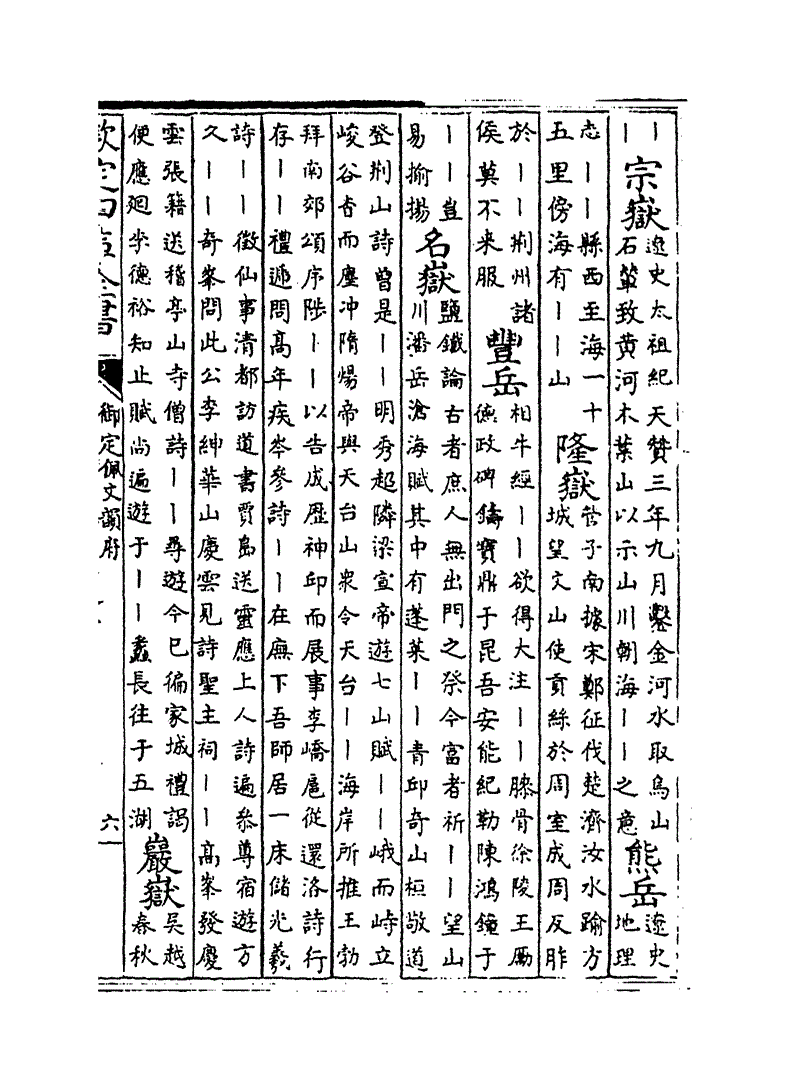 丨
丨
宗嶽
遼史太祖紀天贊三年九月鑿金河水取烏山
石輦致黄河木葉山以示山川朝海丨丨之意
熊岳
遼史
地理
志丨丨縣西至海一十
五里傍海有丨丨山
隆嶽
管子南據宋鄭征伐楚濟汝水踰方
城望文山使貢絲於周室成周反胙
於丨丨荆州諸
侯莫不来服
豐岳
相牛經丨丨欲得大注丨丨膝骨徐陵王勵
德政碑鑄寶鼎于昆吾安能紀勒陳鴻鐘于
丨丨豈
易揄揚
名嶽
鹽鐵論古者庶人無出門之祭今富者祈丨丨望山
川潘岳滄海賦其中有蓬萊丨丨青邱奇山桓敬道
登荆山詩曾是丨丨明秀超隣梁宣帝遊七山賦丨丨峨而峙立
峻谷杳而塵冲隋煬帝與天台山衆令天台丨丨海岸所推王勃
拜南郊頌序陟丨丨以告成歴神邱而展事李嶠扈從還洛詩行
存丨丨禮遞問髙年疾岑參詩丨丨在廡下吾師居一床儲光羲
詩丨丨徵仙事清都訪道書賈島送靈應上人詩遍叅尊宿遊方
久丨丨奇峯問此公李紳華山慶雲見詩聖主祠丨丨髙峯發慶
雲張籍送稽亭山寺僧詩丨丨尋遊今已徧家城禮謁
便應廻李德裕知止賦尚遍遊于丨丨蠡長往于五湖
巖嶽
吳越
春秋
欽定四庫全書
御定佩文韻府
六一